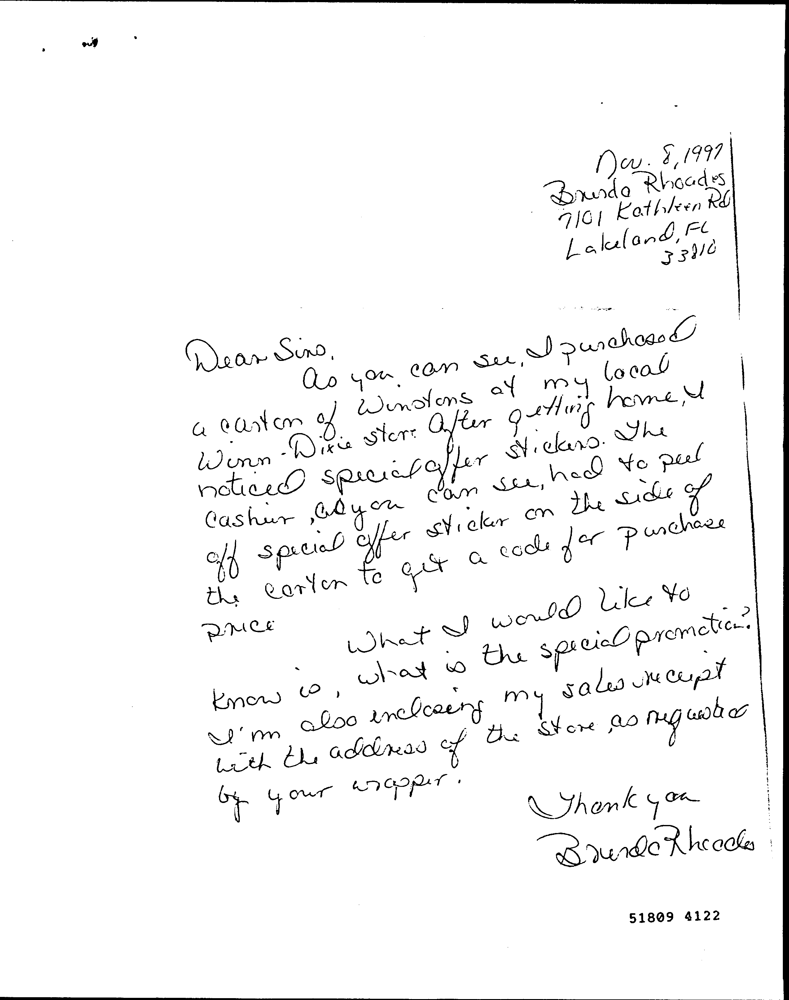 Nov. 8, 1997
Brenda Rhoades
7101 Kathleen Rd
Lakeland, FL
33810
Dear Sirs,
As you can see, I purchased
a carton of Winstons at my local
Winn-Dixie store After getting home, I
noticed special offer stickers. The
Cashier, as you can see, had to peel
off special offer sticker on the side of
the carton to get a code for purchase
price
What I would like to
know is, what is the special promotion?
I'm also inclosing my sales receipt
with the address of the store, as requested
by your wrapper.
Thank you
Brenda Rhoades
51809 4122